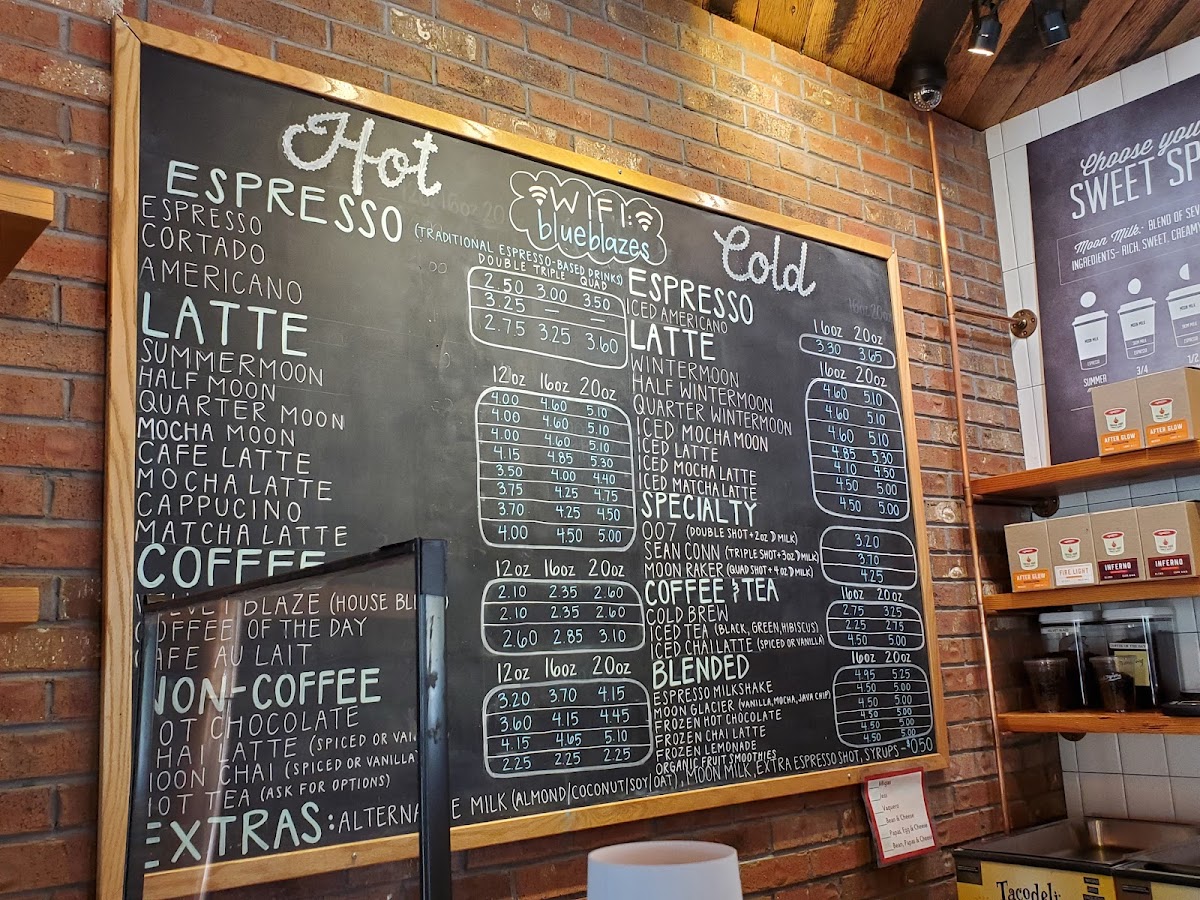 Hot
ESPRESSO (TRADITIONAL ESPRESSO-BASED DRINKS)
DOUBLE TRIPLE QUAD
ESPRESSO 2.50 3.00 3.50
CORTADO 3.25 — —
AMERICANO 2.75 3.25 3.60
LATTE 12oz 16oz 20oz
SUMMERMOON 4.00 4.60 5.10
HALF MOON 4.00 4.60 5.10
QUARTER MOON 4.00 4.60 5.10
MOCHA MOON 4.15 4.85 5.30
CAFE LATTE 3.50 4.00 4.40
MOCHA LATTE 3.75 4.25 4.75
CAPPUCINO 3.70 4.25 4.50
MATCHA LATTE 4.00 4.50 5.00
COFFEE 12oz 16oz 20oz
BLAZE (HOUSE 2.10 2.35 2.60
COFFEE OF THE DAY 2.10 2.35 2.60
CAFE AU LAIT 2.60 2.85 3.10
NON-COFFEE 12oz 16oz 20oz
HOT CHOCOLATE 3.20 3.70 4.15
CHAI LATTE (SPICED OR 3.60 4.15 4.45
MOON CHAI (SPICED OR VANILLA 4.15 4.65 5.10
HOT TEA (ASK FOR OPTIONS) 2.25 2.25 2.25
EXTRAS: MILK (ALMOND/COCONUT/SOY/OAT), MOON MILK, EXTRA ESPRESSO SHOT, SYRUPS - $0.50
WIFI:
blueblazes
Cold
ESPRESSO 16oz 20oz
ICED AMERICANO 3.30 3.65
LATTE 16oz 20oz
WINTERMOON 4.60 5.10
HALF WINTERMOON 4.60 5.10
QUARTER WINTERMOON 4.60 5.10
ICED MOCHA MOON 4.85 5.30
ICED LATTE 4.10 4.50
ICED MOCHA LATTE 4.50 5.00
ICED MATCHA LATTE 4.50 5.00
SPECIALTY
007 (DOUBLE SHOT + 2oz D MILK) 3.20
SEAN CONN (TRIPLE SHOT + 3oz D MILK) 3.70
MOON RAKER (QUAD SHOT + 4oz D MILK) 4.25
COFFEE & TEA 16oz 20oz
COLD BREW 2.75 3.25
ICED TEA (BLACK, GREEN, HIBISCUS) 2.25 2.75
ICED CHAI LATTE (SPICED OR VANILLA) 4.50 5.00
BLENDED 16oz 20oz
ESPRESSO MILKSHAKE 4.95 5.25
MOON GLACIER (VANILLA, MOCHA, JAVA CHIP) 4.50 5.00
FROZEN HOT CHOCOLATE 4.50 5.00
FROZEN CHAI LATTE 4.50 5.00
FROZEN LEMONADE 4.50 5.00
ORGANIC FRUIT SMOOTHIES 4.50 5.00
Choose you
SWEET SP
Moon Milk - BLEND OF SEV
INGREDIENTS - RICH, SWEET, CREAMY
MOON MILK
ESPRESSO
SUMMER
3/4
1/2
AFTER GLOW
AFTER GLOW
AFTER GLOW
FIRE LIGHT
INFERNO
INFERNO
Vaquero
Bean & Cheese
Papas, Egg & Cheese
Bean, Papas & Cheese
Tacodeli